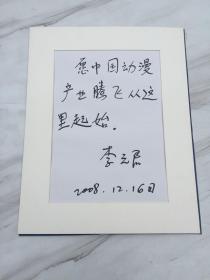 愿中国动漫
产业腾飞从这
里起始.
李元君
2008.12.16日